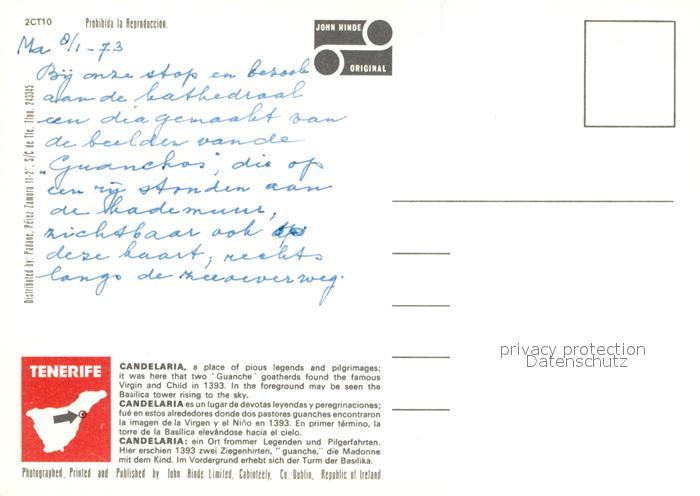 2CT10 Prohibida la Reproduccion.
JOHN HINDE
ORIGINAL
Ma 8/1-73
Bij onze stop en bezoek
aan de kathedraal
een dia gemaakt van
de beelden van de
"Guanchos", die op
een rij stonden aan
de kademuur,
zichtbaar ook op
deze kaart, rechts
langs de zeeoeverweg.
Distributed by: Padane, Pérez Zamora 11-2°, S/C de Tfe. Tfno. 243345
privacy protection
Datenschutz
TENERIFE
CANDELARIA, a place of pious legends and pilgrimages;
it was here that two "Guanche" goatherds found the famous
Virgin and Child in 1393. In the foreground may be seen the
Basilica tower rising to the sky.
CANDELARIA es un lugar de devotas leyendas y peregrinaciones;
fué en estos alrededores donde dos pastores guanches encontraron
la imagen de la Virgen y el Niño en 1393. En primer término, la
torre de la Basílica elevándose hacia el cielo.
CANDELARIA: ein Ort frommer Legenden und Pilgerfahrten.
Hier erschien 1393 zwei Ziegenhirten, "guanche," die Madonne
mit dem Kind. Im Vordergrund erhebt sich der Turm der Basilika.
Photographed, Printed and Published by John Hinde Limited, Cabinteely, Co. Dublin, Republic of Ireland.